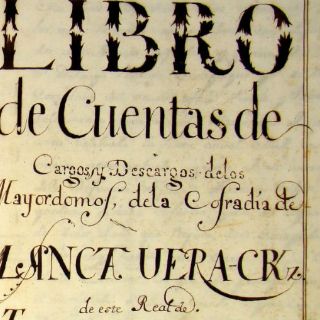 LIBRO
de Cuentas de
Cargos, y Descargos, de los
Mayordomos, de la Cofradia de
SANCTA UERA-CRZ.
de este Real de.